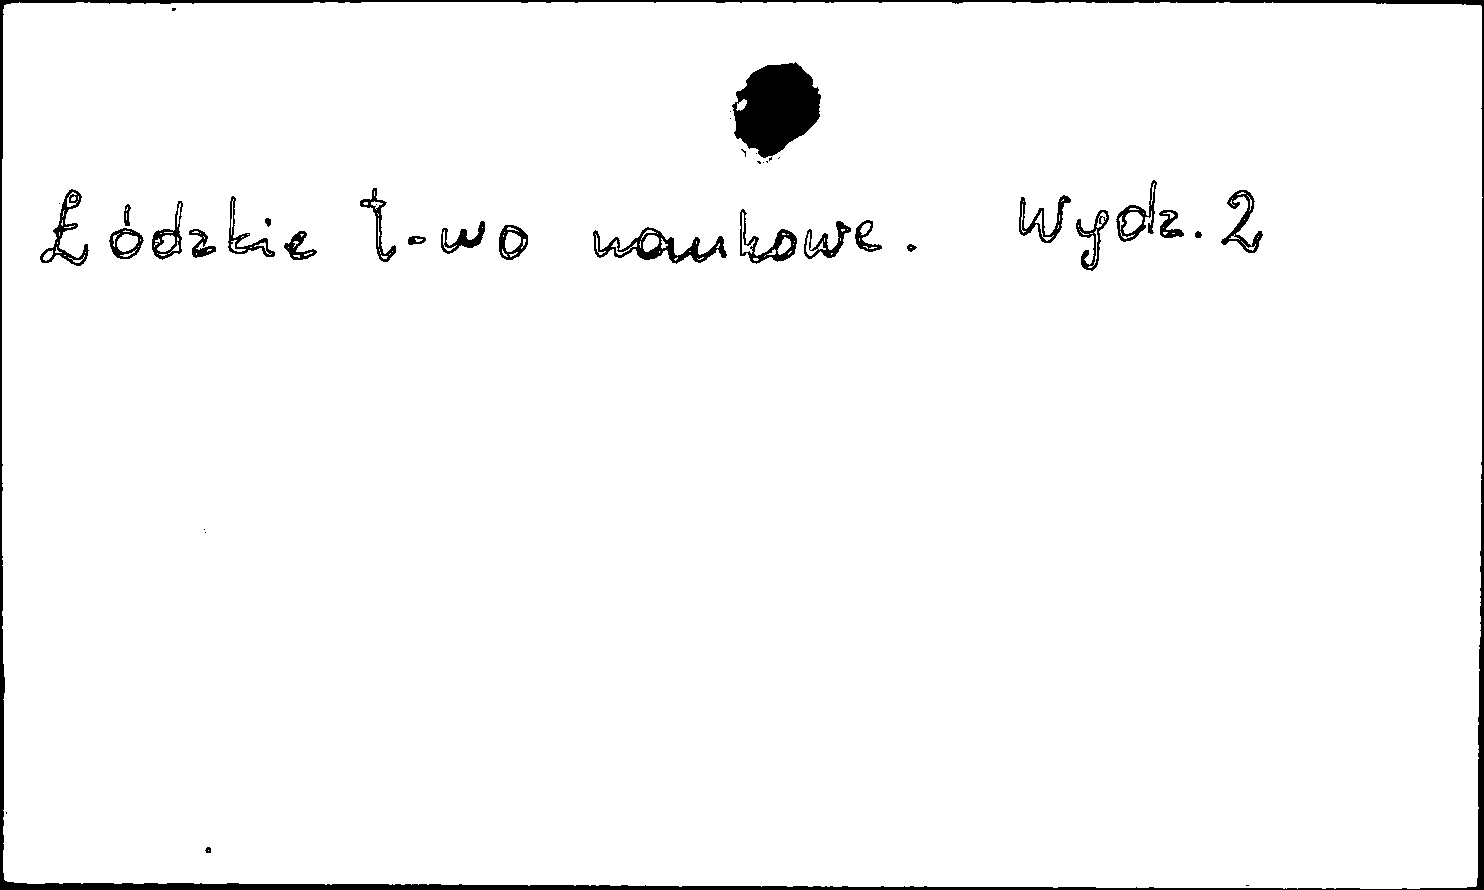 Łódzkie t-wo naukowe. Wydz. 2